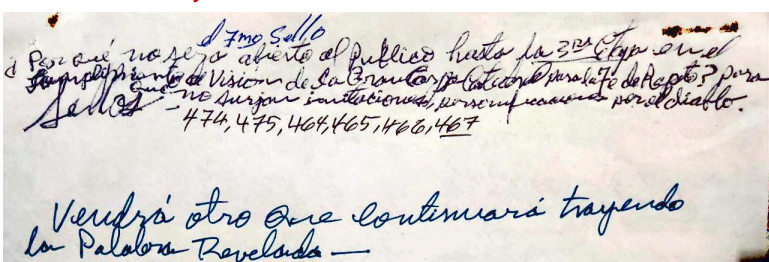 el 7mo Sello
¿Por qué no será abierto al Publico hasta la 3ra Etapa en el
Cumplimiento de Vision de la Gran Carpa Catedral para la Fe de Rapto? para
Sellos que no surjan imitaciones, personificaciones por el diablo.
474, 475, 464, 465, 466, 467
Vendrá otro que continuará trayendo
la Palabra Revelada —